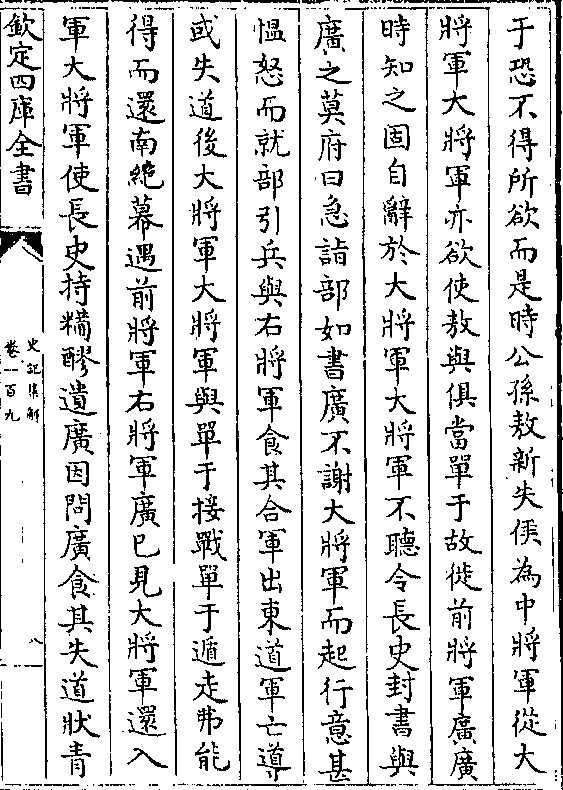 于恐不得所欲而是時公孫敖新失侯為中將軍從大
將軍大將軍亦欲使敖與俱當單于故徙前將軍廣廣
時知之固自辭於大將軍大將軍不聽令長史封書與
廣之莫府曰急詣部如書廣不謝大將軍而起行意甚
慍怒而就部引兵與右將軍食其合軍出東道軍亡導
或失道後大將軍大將軍與單于接戰單于遁走弗能
得而還南絶幕遇前將軍右將軍廣已見大將軍還入
軍大將軍使長史持糒醪遺廣因問廣食其失道狀青
欽定四庫全書
史記集解
卷一百九
八